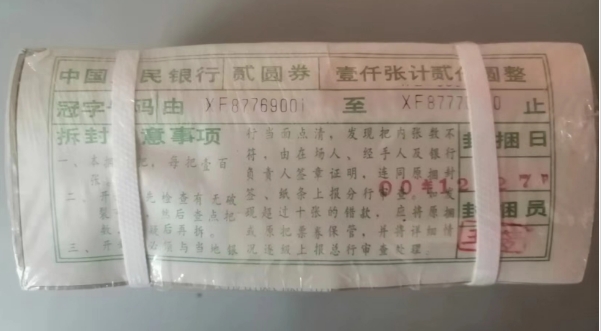 中国 民银行 贰圆券 壹仟张计贰 圆整
冠字 码由 XF87769001 至 XF8777 0 止
拆封 意事项
一、本 把，每把壹百
张
二、开 先检查有无破
裂 然后查点把
数 疑后再拆。
三、开 与当地银
行当面点清，发现把内张数不
符，由在场人、经手人及银行
负责人签章证明，连同原捆封
签、纸条上报分行 查。 发
现超过十张的错款，应将原捆
或原把票券保管，并将详细情
况逐级上报总行审查处理。
封捆日
00年12 27
封捆员